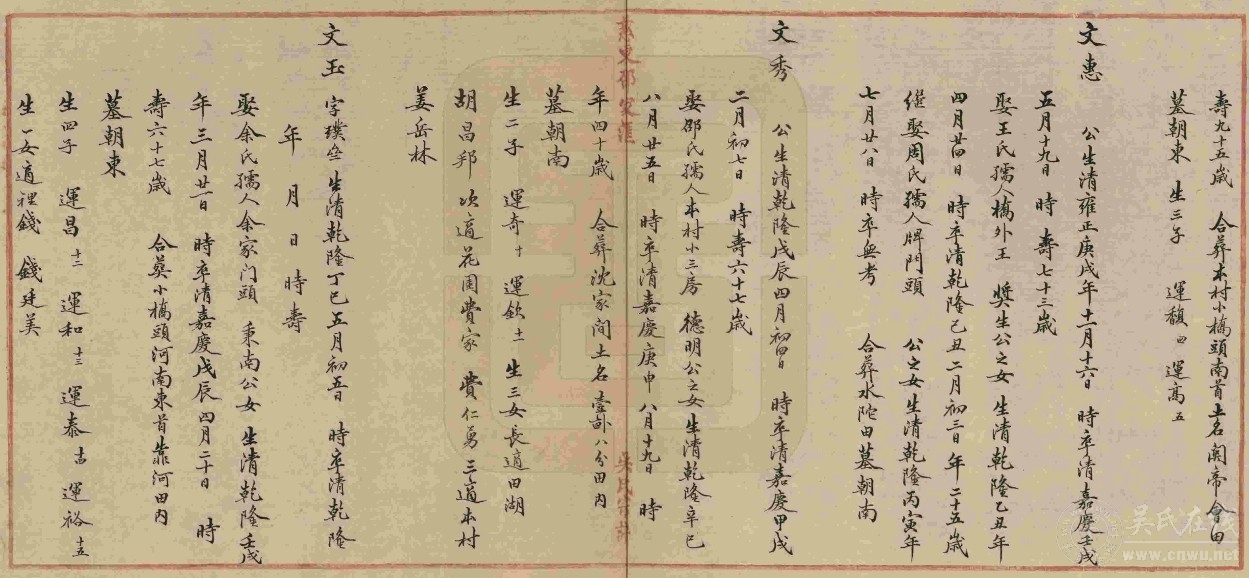 壽九十五歲 合葬本村小橋頭南首土名關帝會田
墓朝東 生三子 運馥四 運高五
文惠 公生清雍正庚戌年十一月十六日 時卒清嘉慶壬戌
五月十九日 時 壽七十三歲
娶王氏孺人橋外王 奬生公之女 生清乾隆乙丑年
四月廿四日 時卒清乾隆己丑二月初三日年二十五歲
繼娶周氏孺人牌門頭 公之女生清乾隆丙寅年
七月廿八日 時卒無考 合葬水陀田墓朝南
文秀 公生清乾隆戊辰四月初四日 時卒清嘉慶甲戌
二月初七日 時壽六十七歲
娶邵氏孺人本村小三房 德明公之女生清乾隆辛巳
八月廿五日 時卒清嘉慶庚申八月十九日 時
年四十歲 合葬沈家 土名壹 八分田內
墓朝南
生二子 運奇十 運欽十一 生三女長適田湖
胡昌邦 次適花園費家 費仁勇 三適本村
姜岳林
文玉 字璞 生清乾隆丁巳五月初五日 時卒清乾隆
年 月 日 時壽
娶余氏孺人余家门頭 秉南公女 生清乾隆壬戌
年三月廿一日 時卒清嘉慶戊辰四月二十日 時
壽六十七歲 合葬小橋頭河南東首靠河田內
墓朝東
生四子 運昌十二 運和十三 運泰十四 運裕十五
生一女適裡錢 錢廷美
吳氏在線
www.cnwu.net